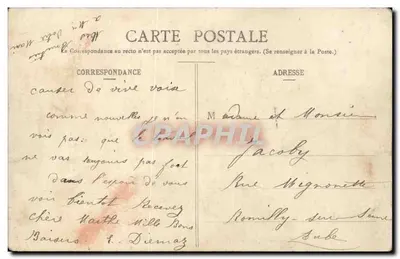 CARTE POSTALE
La Correspondance au recto n'est pas acceptée par tous les pays étrangers. (Se renseigner à la Poste.)
CORRESPONDANCE
ADRESSE
causer de vive voix
comme nouvelles je n'en
vois pas que le
ne va toujours pas fort
dans l'espoir de vous
voir bientôt Recevez
chère Marthe Mille Bons
Baisers
Madame et Monsieur
Jacoby
Rue Mignonette
Romilly-sur-Seine
Aube
CPAPHIL